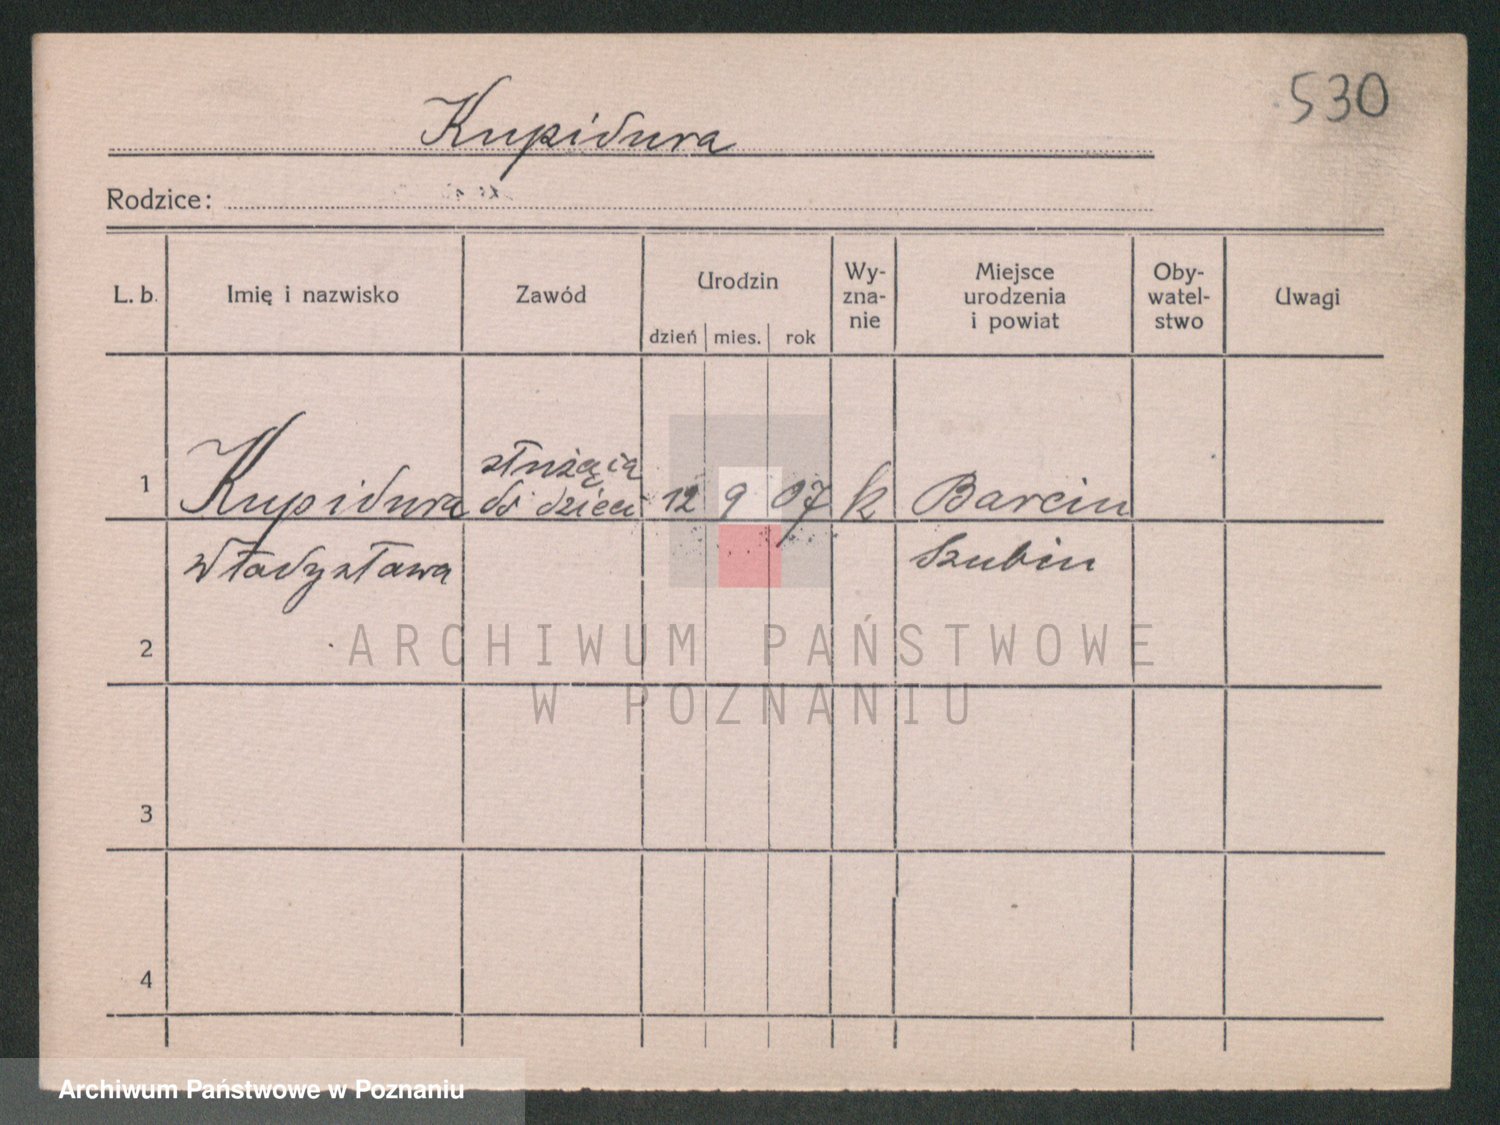 530
Kupidura
Rodzice:
L. b.
Imię i nazwisko
Zawód
Urodzin
dzień
mies.
rok
Wy-
zna-
nie
Miejsce
urodzenia
i powiat
Oby-
watel-
stwo
Uwagi
1
Kupidura
Władysława
służąca
do dzieci
12
9
07
k
Barcin
Szubin
2
3
4
ARCHIWUM PAŃSTWOWE
W POZNANIU
Archiwum Państwowe w Poznaniu